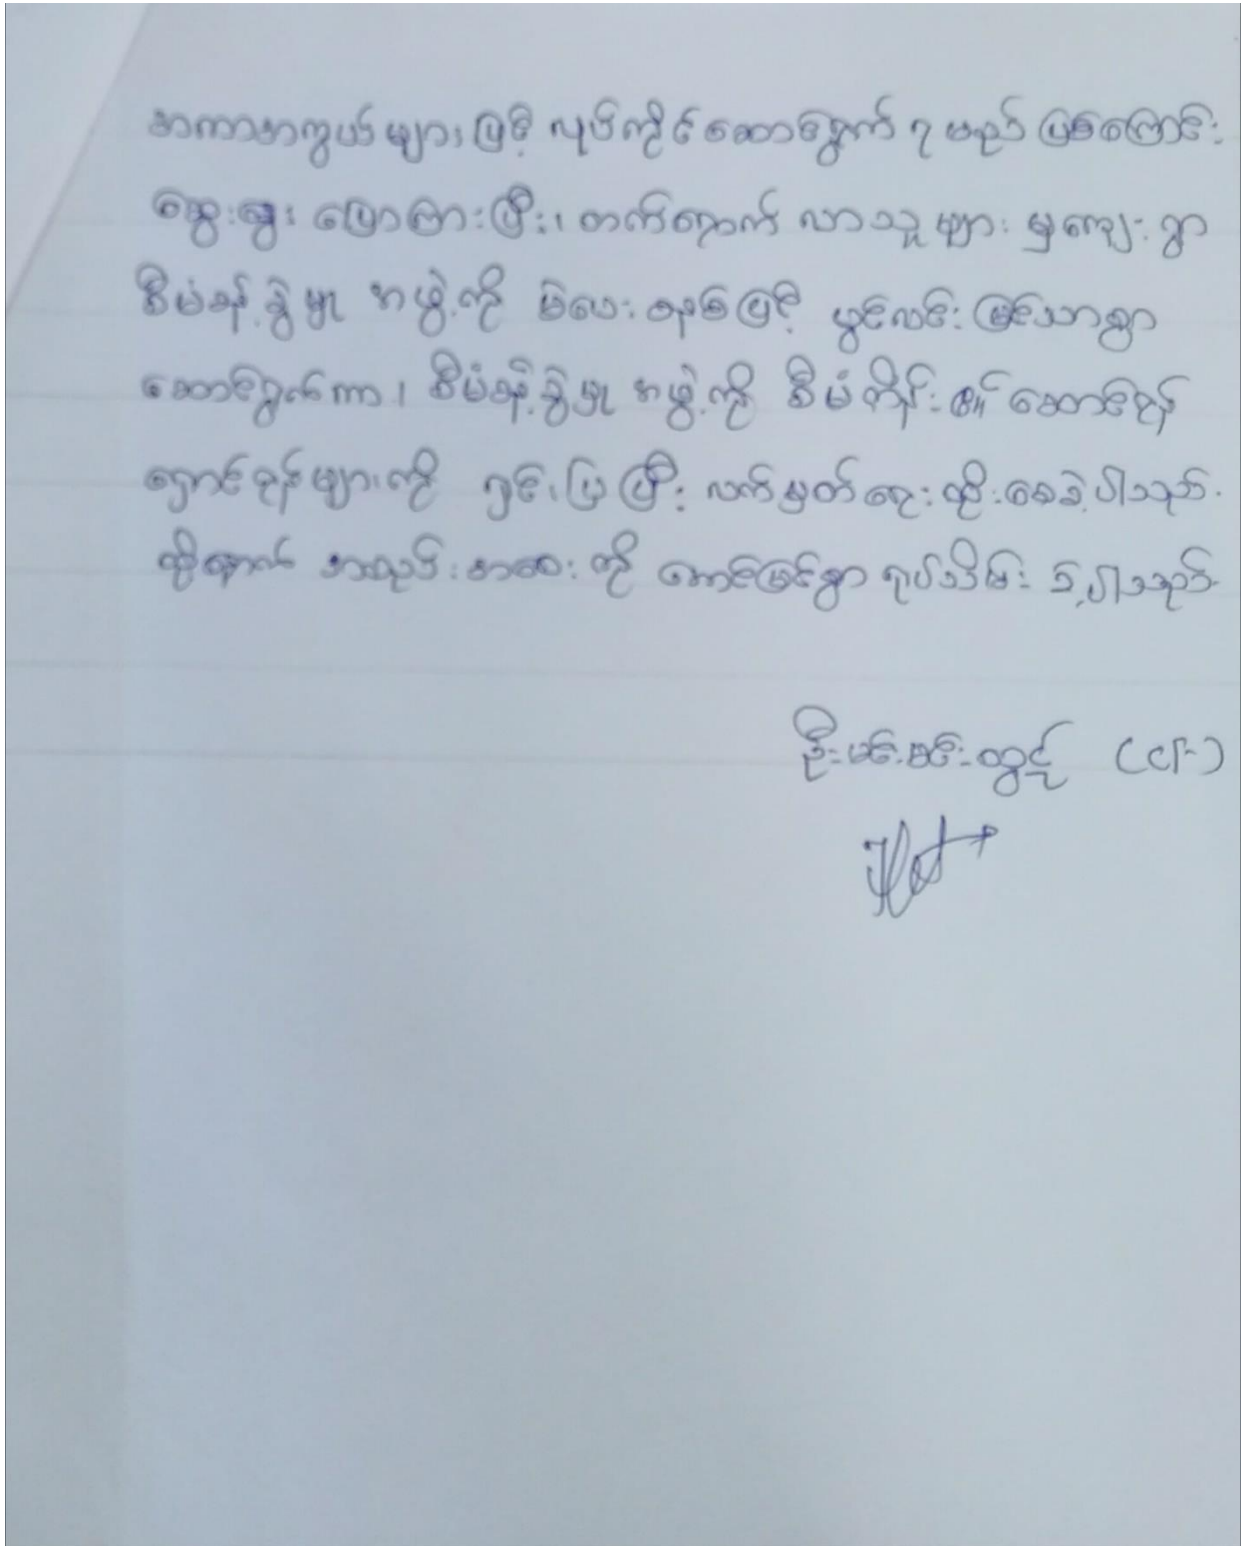 အကာအကွယ်များဖြင့် လုပ်ကိုင်ဆောင်ရွက် ရမည် ဖြစ်ကြောင်း
ဆွေးနွေး ပြောကြားပြီး၊ တက်ရောက် လာသူ များ မှ ကျေးရွာ
စီမံခန့်ခွဲမှု အဖွဲ့ကို မဲပေးစနစ်ဖြင့် ပွင့်လင်းမြင်သာစွာ
ဆောင်ရွက်ကာ၊ စီမံခန့်ခွဲမှု အဖွဲ့ကို စီမံကိန်း၏ ဆောင်ရန်
ရှောင်ရန်များကို ရှင်းပြပြီး လက်မှတ်ရေးထိုးစေခဲ့ပါသည်.
ထို့နောက် အစည်းအဝေးကို အောင်မြင်စွာ ရုပ်သိမ်း ခဲ့ပါသည်.
ဦးမင်းမင်းထွင့် (CF)